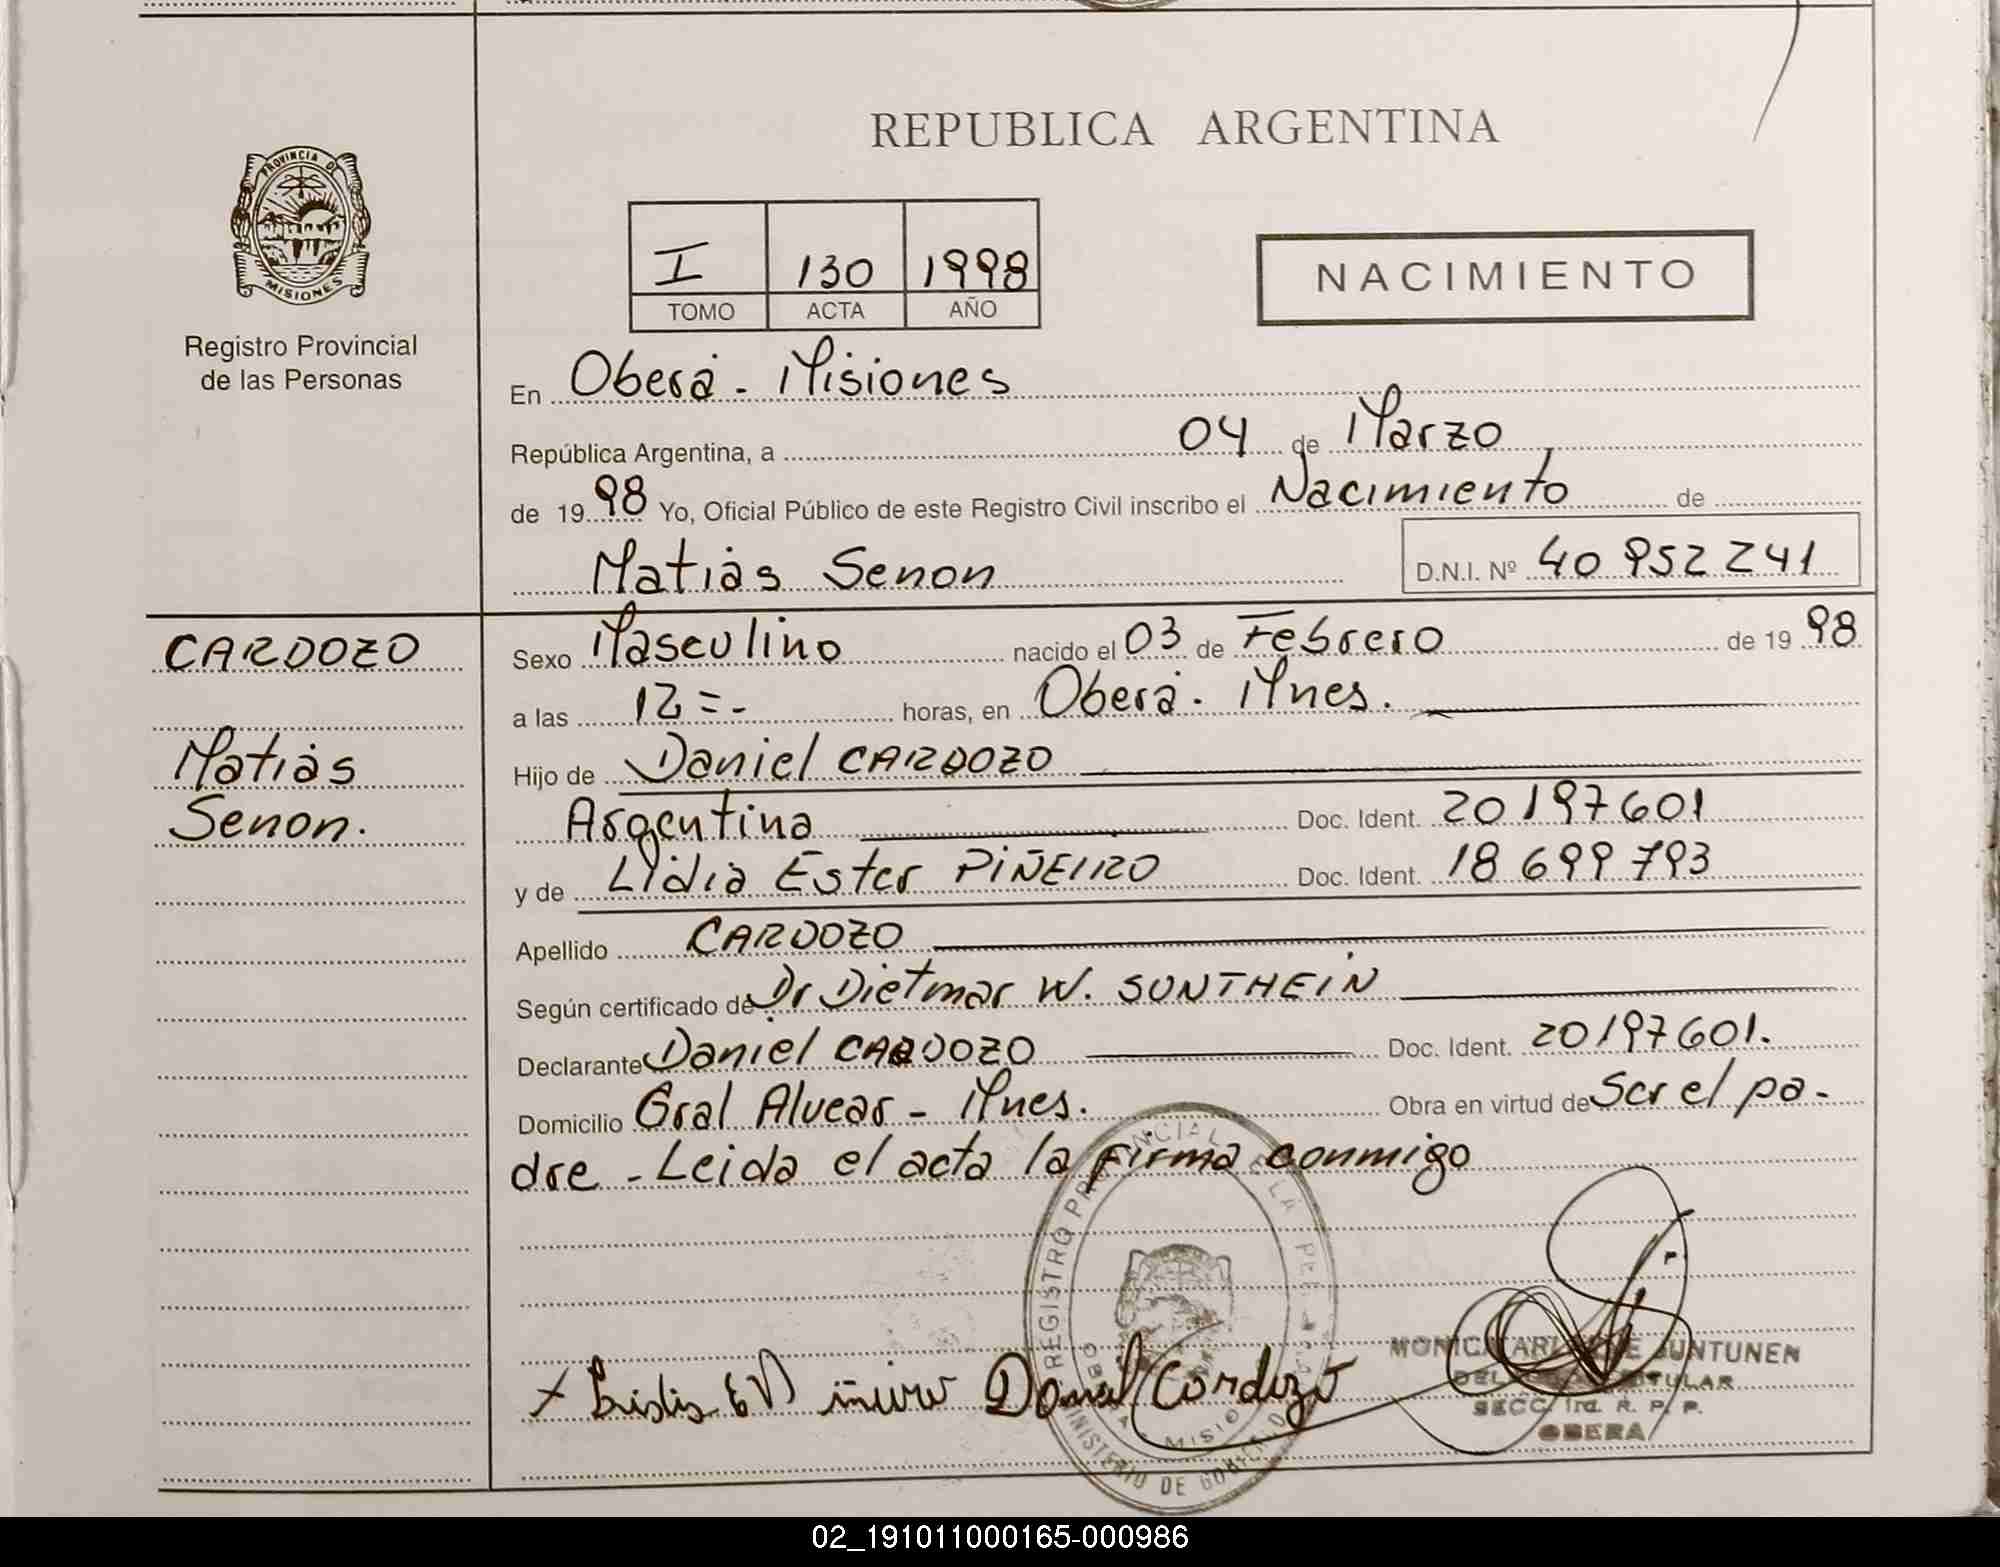 REPUBLICA ARGENTINA
PROVINCIA DE MISIONES
Registro Provincial
de las Personas
I 130 1998
TOMO ACTA AÑO
NACIMIENTO
En Oberá - Misiones
República Argentina, a 04 de Marzo
de 19 98 Yo, Oficial Público de este Registro Civil inscribo el Nacimiento de
Matias Senon D.N.I. Nº 40 952 241
CARDOZO
Matias
Senon.
Sexo Masculino nacido el 03 de Febrero de 19 98
a las 12 = - horas, en Oberá - Mnes.
Hijo de Daniel CARDOZO
Argentina Doc. Ident. 20 197 601
y de Lidia Ester PIÑEIRO Doc. Ident. 18 699 793
Apellido CARDOZO
Según certificado de Dr Dietmar W. SUNTHEIN
Declarante Daniel CARDOZO Doc. Ident. 20 197 601.
Domicilio Gral Alvear - Mnes. Obra en virtud de Ser el pa-
dre - Leida el acta la firma conmigo
REGISTRO PROVINCIAL DE LA PER
OBERA MISIO
MINISTERIO DE GOBIERNO
Daniel Cardozo
JUNTUNEN
TITULAR
SECC. 1ra. R. P. P.
OBERA
02_191011000165-000986